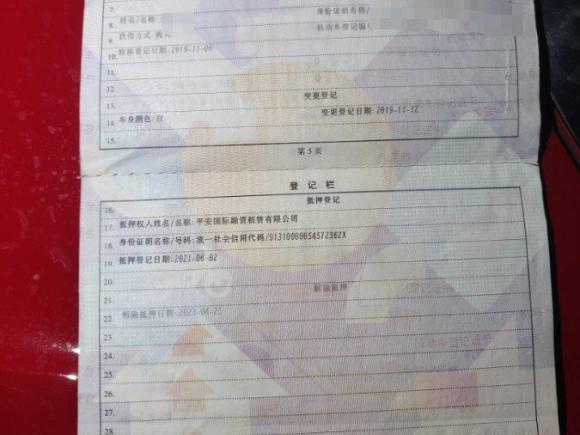 7.
8.
姓名/名称
身份证明名称/
9. 获得方式:购入
机动车登记编
10. 转移登记日期:2019-11-06
11.
12.
13. 变更登记
14. 车身颜色:白
变更登记日期:2019-11-12
15.
第5页
登记栏
16. 抵押登记
17. 抵押权人姓名/名称:平安国际融资租赁有限公司
18. 身份证明名称/号码:统一社会信用代码/
19. 抵押登记日期:2021-06-02
20.
21. 解除抵押
22. 解除抵押日期:2023-04-23
23.
24.
25.
26.
27.
28.